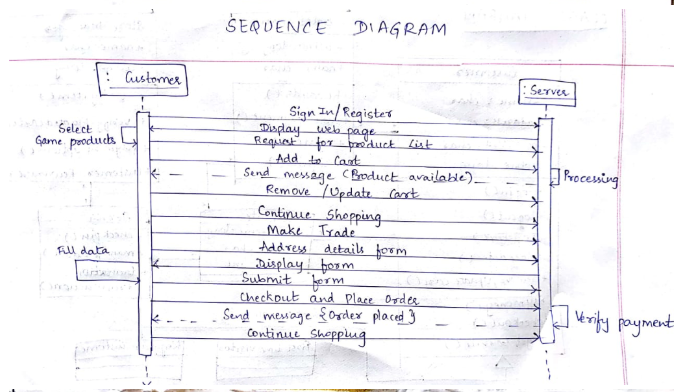 SEQUENCE DIAGRAM
: Customer
: Server
Sign In/Register
Display web page
Select
Game products
Request for product List
Add to Cart
Send message (Product available)
Processing
Remove /Update Cart
Continue Shopping
Make Trade
Address details form
Fill data
Display form
Submit form
Checkout and Place Order
Send message {Order placed}
Verify payment
Continue Shopping